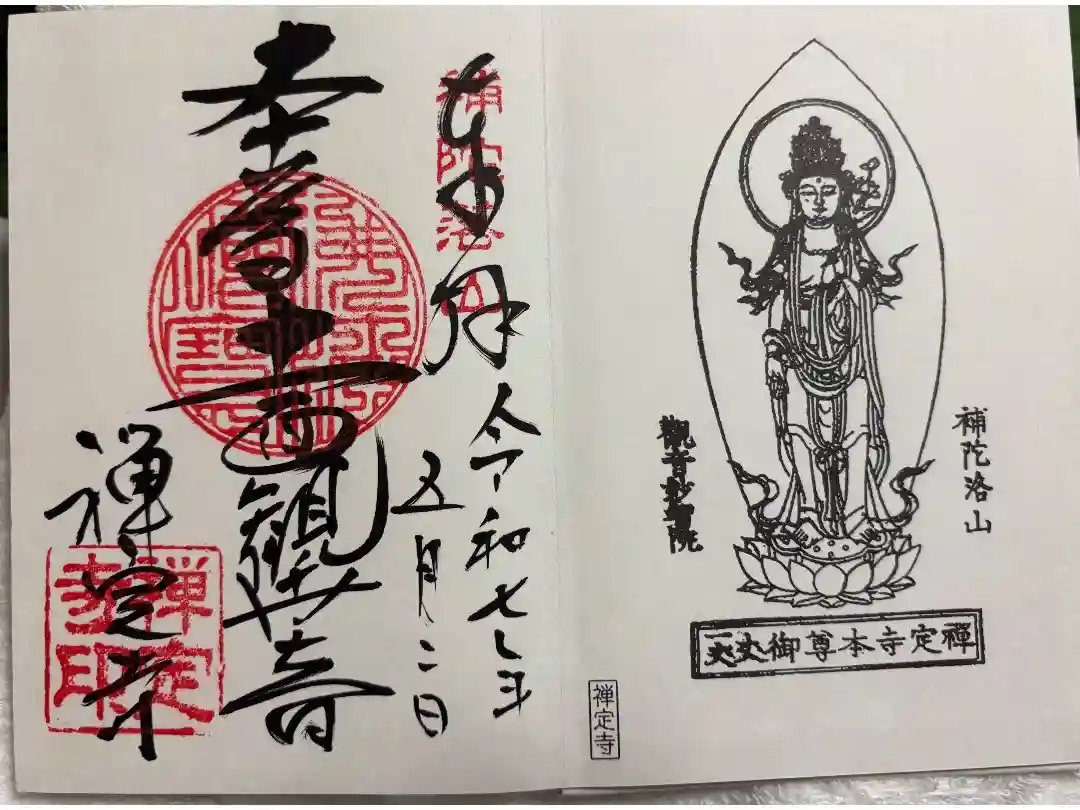 補陀洛山
觀音
禪定寺本尊御
禅定寺
奉拝
補陀洛山
令和七年
五月二日
本尊十一面観世音
禅定寺
禅定寺印